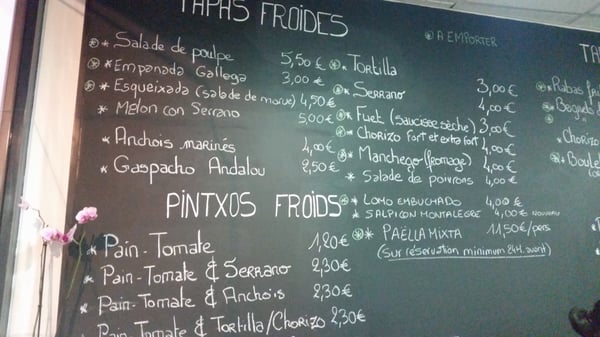 TAPAS FROIDES
* A EMPORTER
* Salade de poulpe 5,50€
* Empanada Gallega 3,00€
* Esqueixada (salade de morue) 4,50€
* Melon con Serrano 5,00€
* Anchois marinés 4,00€
* Gaspacho Andalou 2,50€
PINTXOS FROIDS
* Pain-Tomate 1,20€
* Pain-Tomate & Serrano 2,30€
* Pain-Tomate & Anchois 2,30€
Pain-Tomate & Tortilla/Chorizo 2,30€
* Tortilla 3,00€
* Serrano 4,00€
* Fuet (saucisse sèche) 3,00€
* Chorizo fort et extra fort 4,00€
* Manchego (fromage) 4,00€
* Salade de poivrons 4,00€
* Lomo embuchado 4,00€
* Salpicon Montalegre 4,00€ nouveau
* Paëlla Mixta 11,50€/pers
(sur réservation minimum 24H avant)
TA
Chorizo